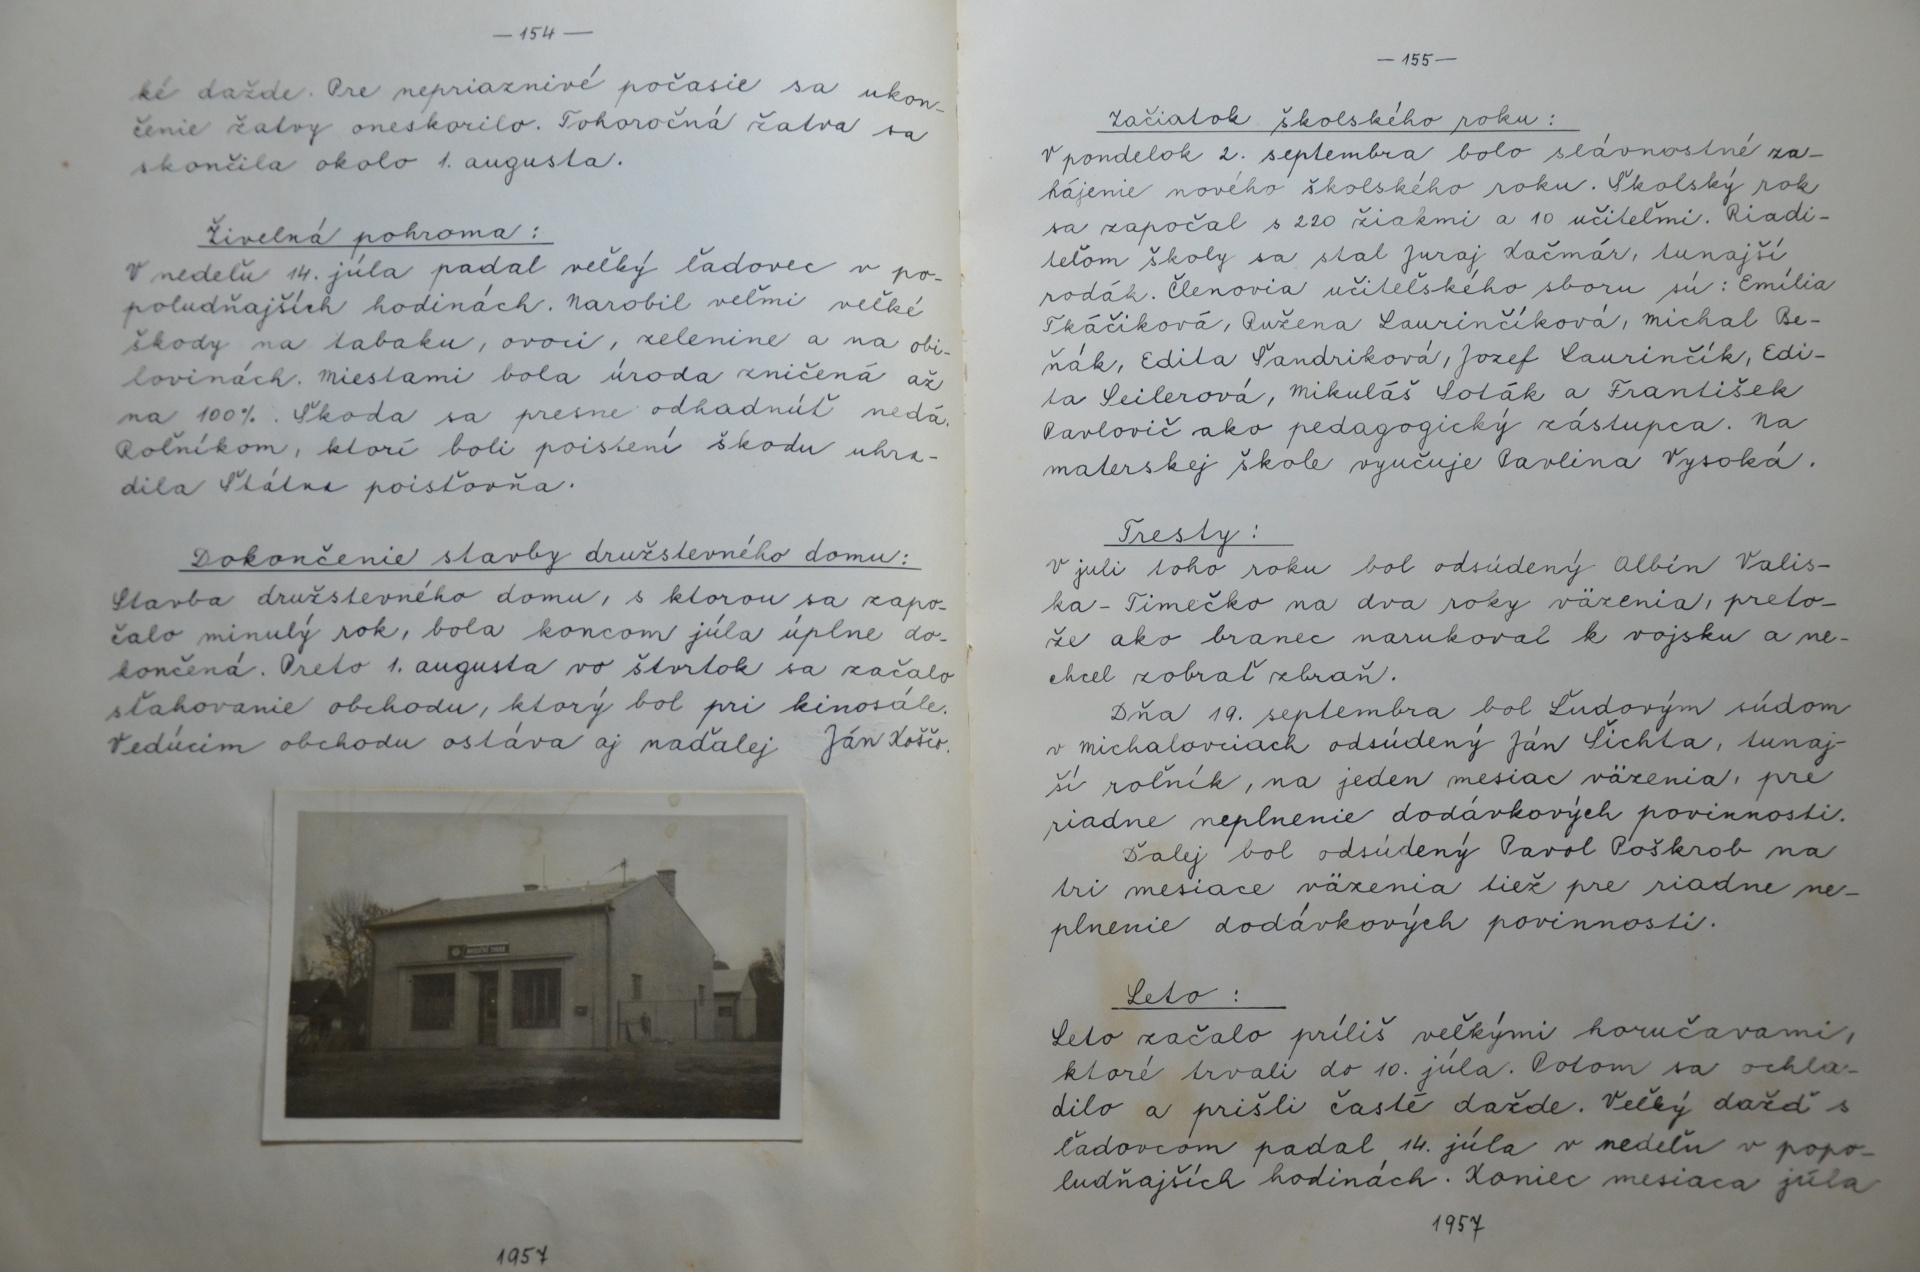 — 154 —
ké dažde. Pre nepriaznivé počasie sa ukon-
čenie žatvy oneskorilo. Tohoročná žatva sa
skončila okolo 1. augusta.
Živelná pohroma :
V nedeľu 14. júla padal veľký ľadovec v po-
poludňajších hodinách. Narobil veľmi veľké
škody na tabaku, ovoci, zelenine a na obi-
lovinách. Miestami bola úroda zničená až
na 100%. Škoda sa presne odhadnúť nedá.
Roľníkom, ktorí boli poistení škodu uhra-
dila Štátna poisťovňa.
Dokončenie stavby družstevného domu:
Stavba družstevného domu, s ktorou sa zapo-
čalo minulý rok, bola koncom júla úplne do-
končená. Preto 1. augusta vo štvrtok sa začalo
sťahovanie obchodu, ktorý bol pri kinosále.
Vedúcim obchodu ostáva aj naďalej Ján Koščo.
1957
— 155 —
Začiatok školského roku :
V pondelok 2. septembra bolo slávnostné za-
hájenie nového školského roku. Školský rok
sa započal s 220 žiakmi a 10 učiteľmi. Riadi-
teľom školy sa stal Juraj Kačmár, tunajší
rodák. Členovia učiteľského sboru sú : Emília
Tkáčiková, Ružena Laurinčíková, Michal Be-
ňák, Edita Šandriková, Jozef Laurinčík, Edi-
ta Seilerová, Mikuláš Soták a František
Pavlovič ako pedagogický zástupca. Na
materskej škole vyučuje Pavlina Vysoká.
Tresty :
V juli toho roku bol odsúdený Albín Valis-
ka - Timečko na dva roky väzenia, preto-
že ako branec narukoval k vojsku a ne-
chcel zobrať zbraň.
Dňa 19. septembra bol Ľudovým súdom
v Michalovciach odsúdený Ján Šichta, tunaj-
ší roľník, na jeden mesiac väzenia, pre
riadne neplnenie dodávkových povinnosti.
Ďalej bol odsúdený Pavol Poškrob na
tri mesiace väzenia tiež pre riadne ne-
plnenie dodávkových povinnosti.
Leto :
Leto začalo príliš veľkými horučavami,
ktoré trvali do 10. júla. Potom sa ochla-
dilo a prišli časté dažde. Veľký dažď s
ľadovcom padal 14. júla v nedeľu v popo-
ludňajších hodinách. Koniec mesiaca júla
1957